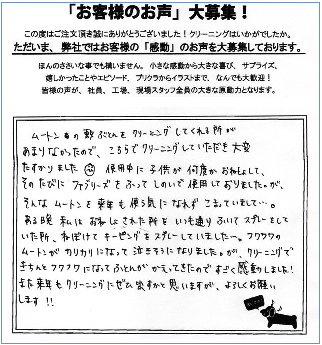 「お客様のお声」大募集！
この度はご注文頂き誠にありがとうございました！クリーニングはいかがでしたか。
ただいま、弊社ではお客様の「感動」のお声を大募集しております。
ほんのささいな事でも構いません。小さな感動から大きな喜び、サプライズ、
嬉しかったことやエピソード、プリクラからイラストまで、なんでも大歓迎！
皆様の声が、社員、工場、現場スタッフ全員の大きな原動力となります。
ムートンの敷ぶとんをクリーニングしてくれる所が
あまりなかったので、こちらでクリーニングしていただき大変
たすかりました 使用中に子供が何度かおねしょして、
そのたびにファブリーズをふって しのいで使用しておりましたが、
そんなムートンを来年も使う気になれず こまっていまして…。
ある晩 私はおねしょされた所をいつも通りふいてスプレーをして
いた所、ねぼけてキーピングをスプレーしていました～。フワフワの
ムートンがカリカリになって泣きそうになりました。が、クリーニングで
きちんとフワフワになっておふとんがかえってきたのですごく感動しました!
また来年もクリーニングにぜひ出すかと思いますが、よろしくお願い
します!!